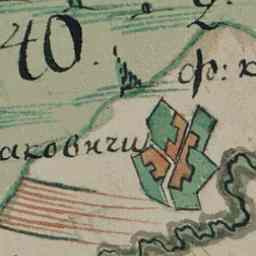 2.
40.
ф: к
аковичи